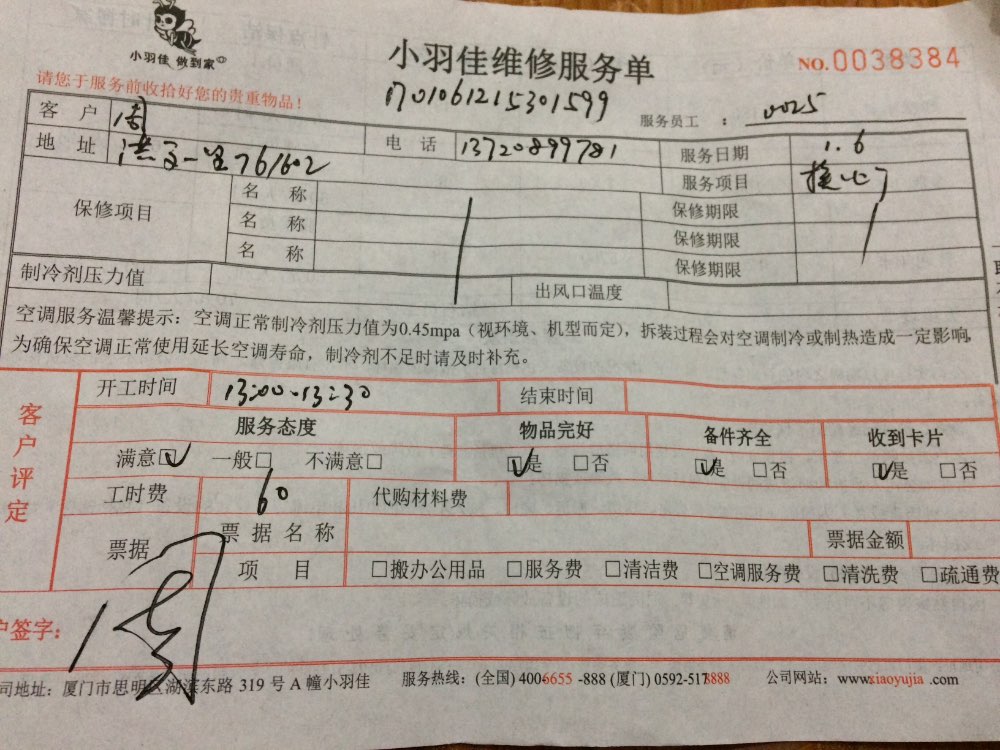 小羽佳 做到家
小羽佳维修服务单
NO.0038384
请您于服务前收拾好您的贵重物品！
1701061215301599
服务员工 ： 0025
客 户 周
地 址 761602
电 话 13720899781
服务日期 1.6
服务项目
保修项目
名 称 保修期限
名 称 保修期限
名 称 保修期限
制冷剂压力值 出风口温度
空调服务温馨提示：空调正常制冷剂压力值为0.45mpa（视环境、机型而定），拆装过程会对空调制冷或制热造成一定影响，
为确保空调正常使用延长空调寿命，制冷剂不足时请及时补充。
客户评定
开工时间 13:00-13:30 结束时间
服务态度 物品完好 备件齐全 收到卡片
满意☑ 一般□ 不满意□ ☑是 □否 ☑是 □否 ☑是 □否
工时费 60 代购材料费
票据 票据名称 票据金额
项 目 □搬办公用品 □服务费 □清洁费 □空调服务费 □清洗费 □疏通费
户签字： 周
司地址：厦门市思明区湖滨东路 319 号 A 幢小羽佳 服务热线：(全国) 4006655 -888 (厦门) 0592-5178888 公司网站：www.xiaoyujia .com